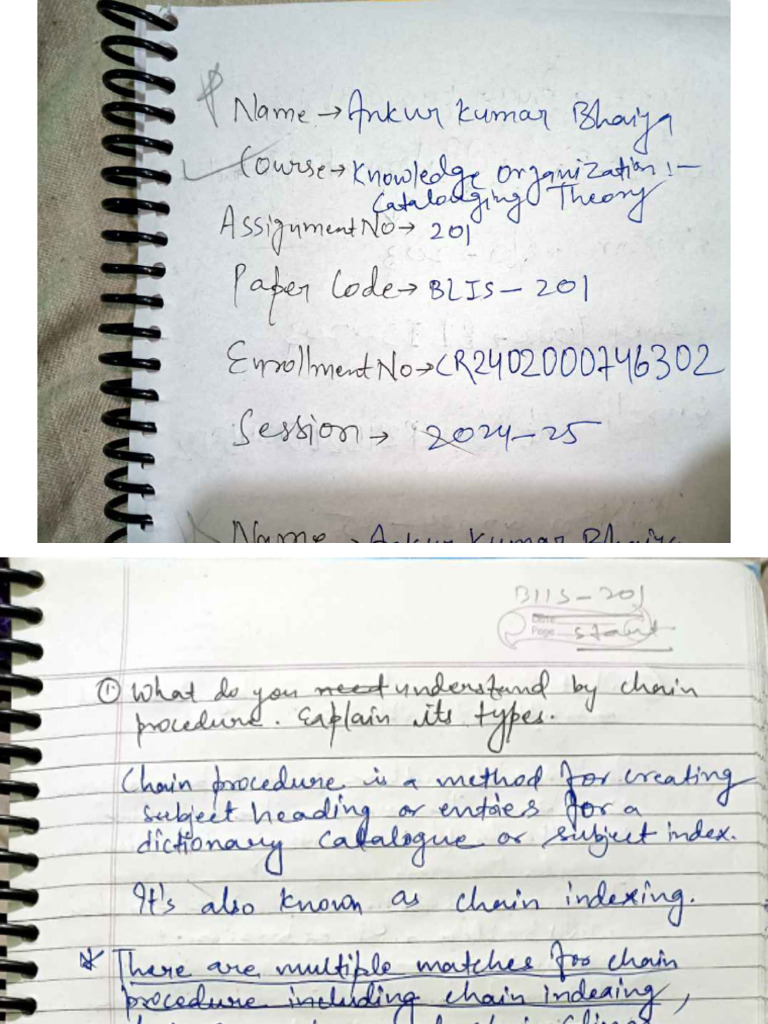 Name → Ankur Kumar Bhaiya
Course → Knowledge Organization :-
Catalouging Theory
Assignment No → 201
Paper Code → BLIS - 201
Enrollment No → CR2402000746302
Session → 2024-25
Name → Ankur Kumar Bhaiya
BlIS - 201
Date
Page start
① What do you need understand by chain
procedure. Explain its types.
Chain procedure is a method for creating
subject heading or entries for a
dictionary catalogue or subject index.
It's also known as chain indexing.
There are multiple matches for chain
procedure including chain indexing,